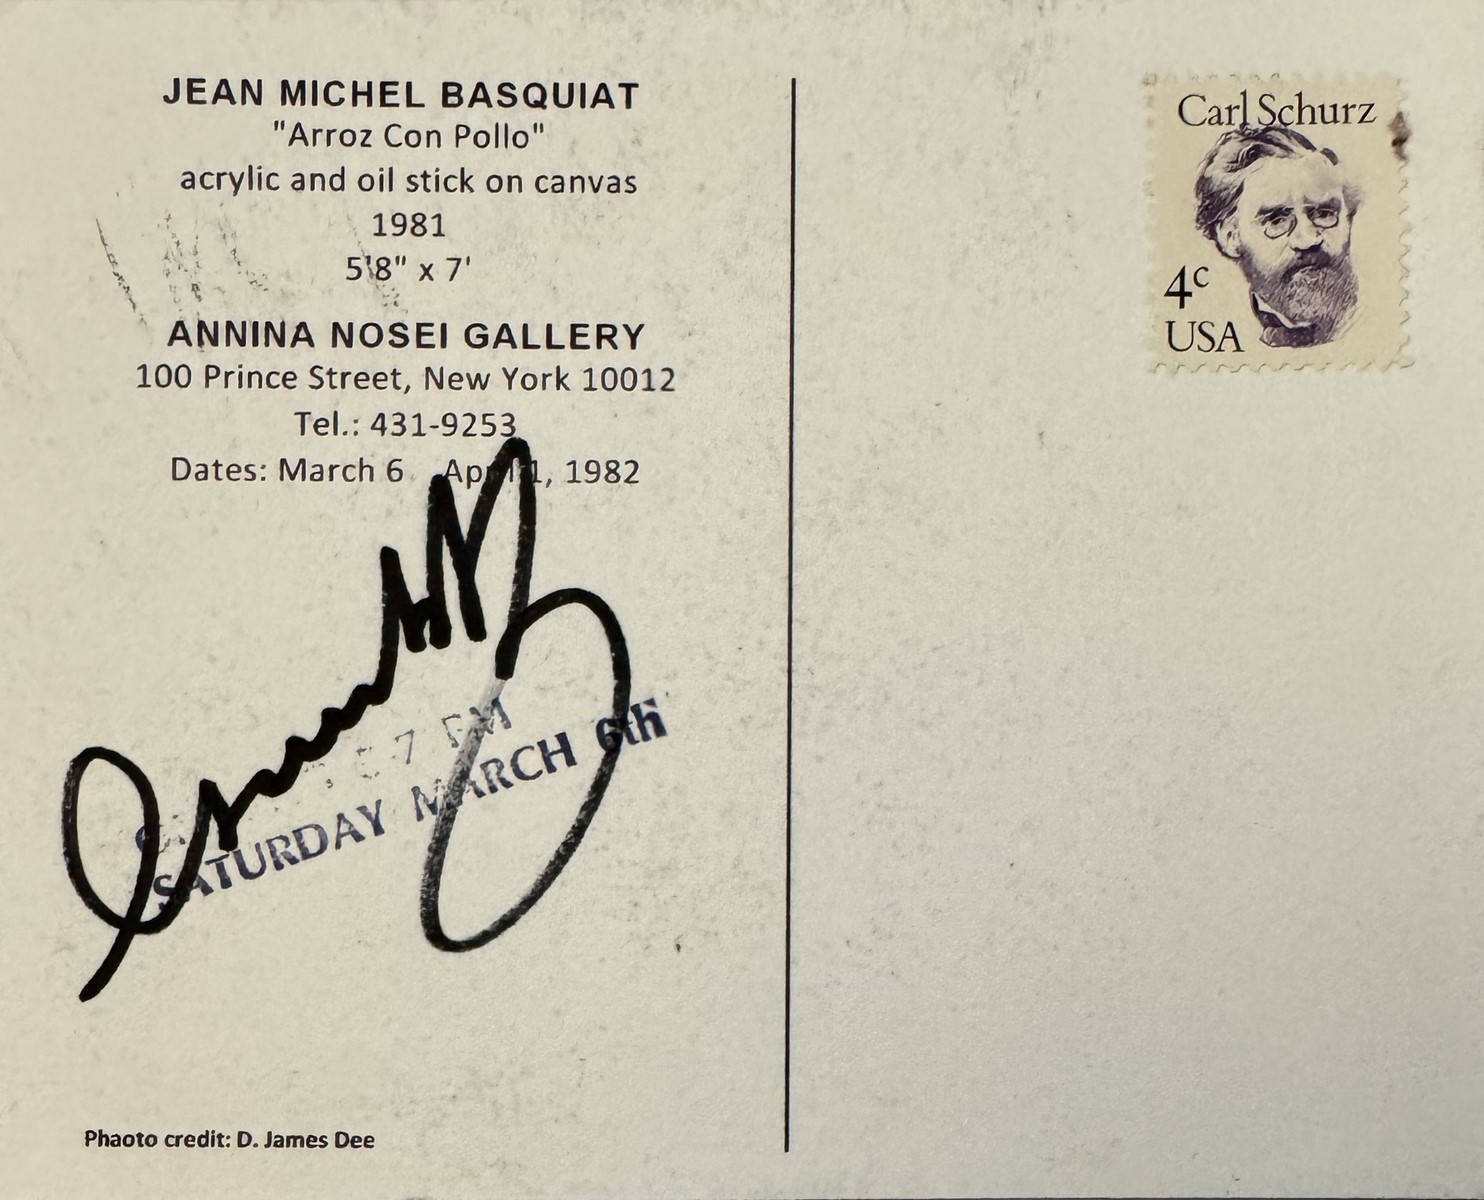 JEAN MICHEL BASQUIAT
"Arroz Con Pollo"
acrylic and oil stick on canvas
1981
5'8" x 7'
ANNINA NOSEI GALLERY
100 Prince Street, New York 10012
Tel.: 431-9253
Dates: March 6 April 1, 1982
7 PM
SATURDAY MARCH 6th
Phaoto credit: D. James Dee
Carl Schurz
4c
USA